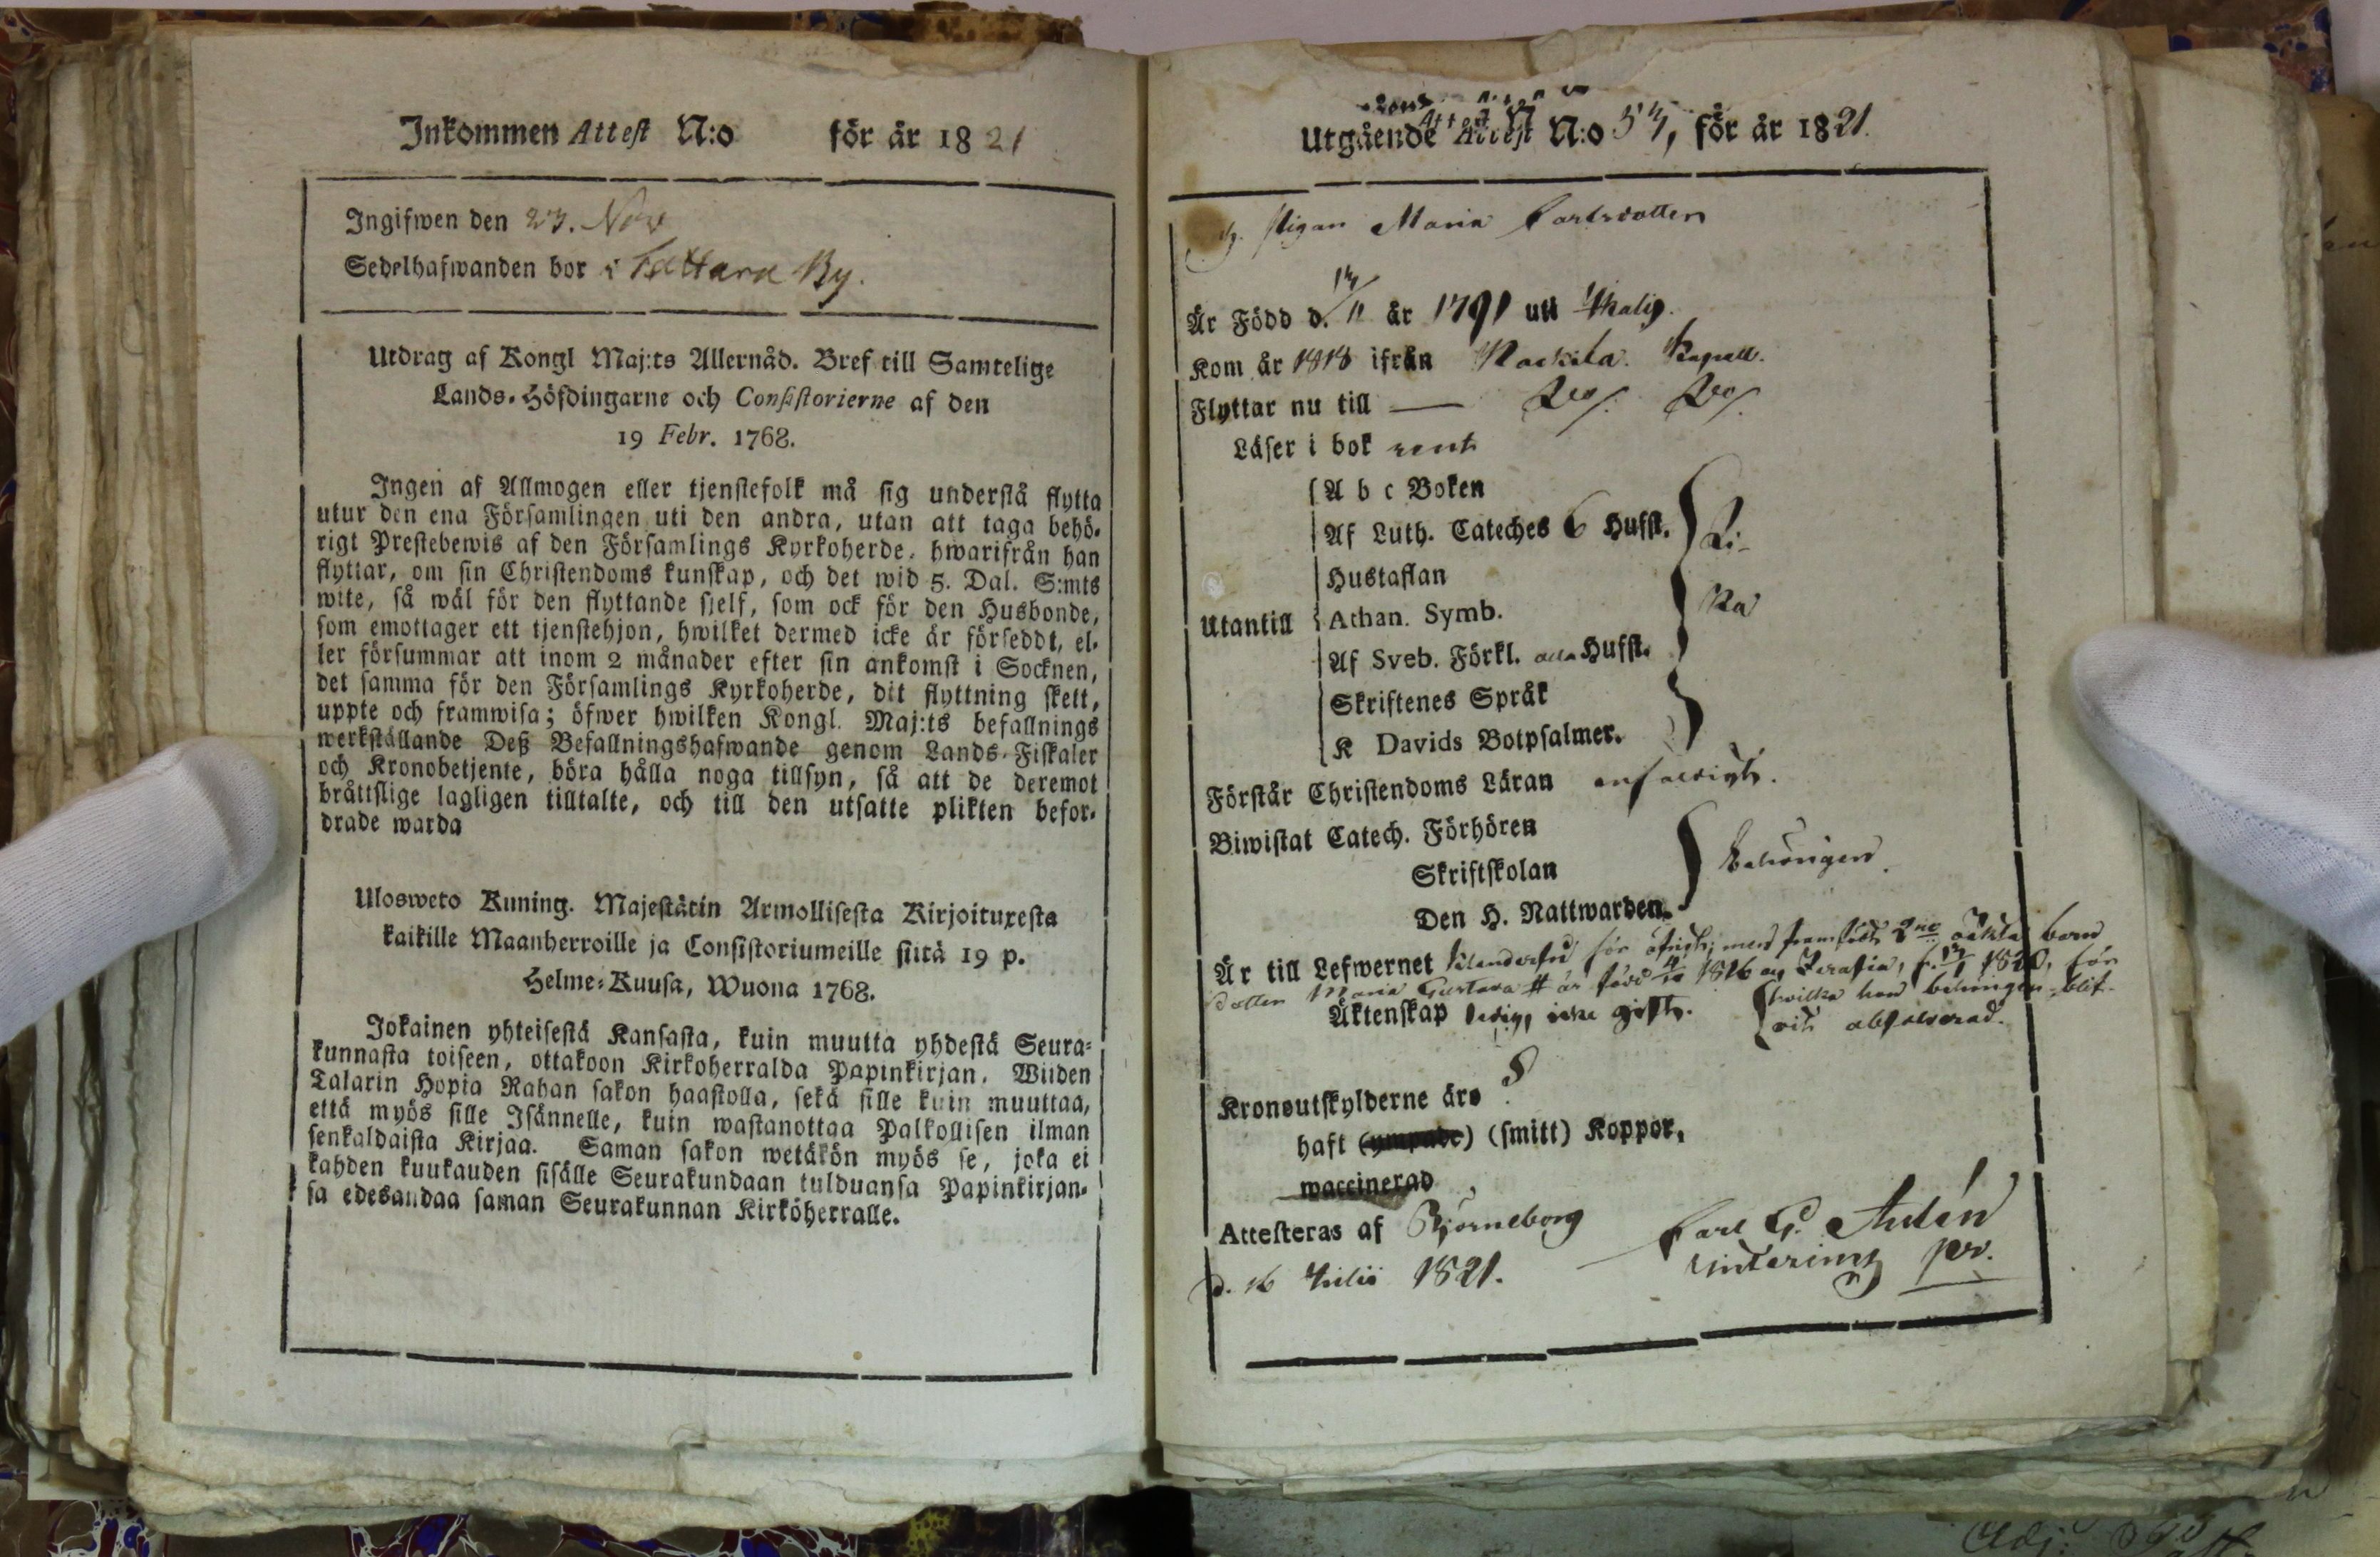 Inkommen Attest N:o för år 1821
Ingifwen den 27. Nov
Sedelhafwanden bor i Tattara By.
Utdrag af Kongl Maj:ts Allernåd. Bref till Samtelige
Lands-Höfdingarne och Consistorierne af den
19 Febr. 1768.
Ingen af Allmogen eller tjenstefolk må sig understå flytta
utur den ena Församlingen uti den andra, utan att taga behö-
rigt Prestebewis af den Församlings Kyrkoherde, hwarifrån han
flyttar, om sin Christendoms kunskap, och det wid 5. Dal. S:mts
wite, så wäl för den flyttande sjelf, som ock för den Husbonde,
som emottager ett tjenstehjon, hwilket dermed icke är förseddt, el-
ler försummar att inom 2 månader efter sin ankomst i Socknen,
det samma för den Församlings Kyrkoherde, dit flyttning skett,
uppte och framwisa; öfwer hwilken Kongl. Maj:ts befallnings
werkställande Deß Befallningshafwande genom Lands-Fiskaler
och Kronobetjente, böra hålla noga tillsyn, så att de deremot
bråttslige lagligen tilltalte, och till den utsatte plikten befor-
drade warda
Ulosweto Kuning. Majestätin Armollisesta Kirjoituxesta
kaikille Maanherroille ja Consistoriumeille siitä 19 p.
Helme-Kuusa, Wuona 1768.
Jokainen yhteisestä Kansasta, kuin muutta yhdestä Seura-
kunnasta toiseen, ottakoon Kirkoherralda Papinkirjan, Wiiden
Talarin Hopia Rahan sakon haastolla, sekä sille kuin muuttaa,
että myös sille Isännelle, kuin wastanottaa Palkollisen ilman
senkaldaista Kirjaa. Saman sakon wetäkön myös se, joka ei
kahden kuukauden sisälle Seurakundaan tulduansa Papinkirjan-
sa edesandaa saman Seurakunnan Kirköherralle.
Utgående Attest N:o 57, för år 1821.
Pigan Maria Carlsdotter
Är Född d. 17/11 år 1791 uti
Kom år 1818 ifrån Kapell.
Flyttar nu till —
Läser i bok rent
A b c Boken
Af Luth. Cateches 6 Hufst. Li-
Hustaflan
Utantill Athan. Symb. ka
Af Sveb. Förkl. alla Hufst.
Skriftenes Språk
K Davids Botpsalmer.
Förstår Christendoms Läran enfaldigt.
Biwistat Catech. Förhören
Skriftskolan behörigen
Den H. Nattwarden.
Är till Lefwernet klanderfri för öfrigt; men framfödt 2ne oäkta barn
dotten Maria Gustava är född 1816 och 1820, för
Äktenskap ledig, icke gift. hvilka hon behörigen blif-
vit absolverad.
Kronoutskylderne äro
haft (ympade) (smitt) Koppor,
waccinerad
Attesteras af Björneborg Carl G.
d. 16 Julii 1821. interims pr.
Adj: